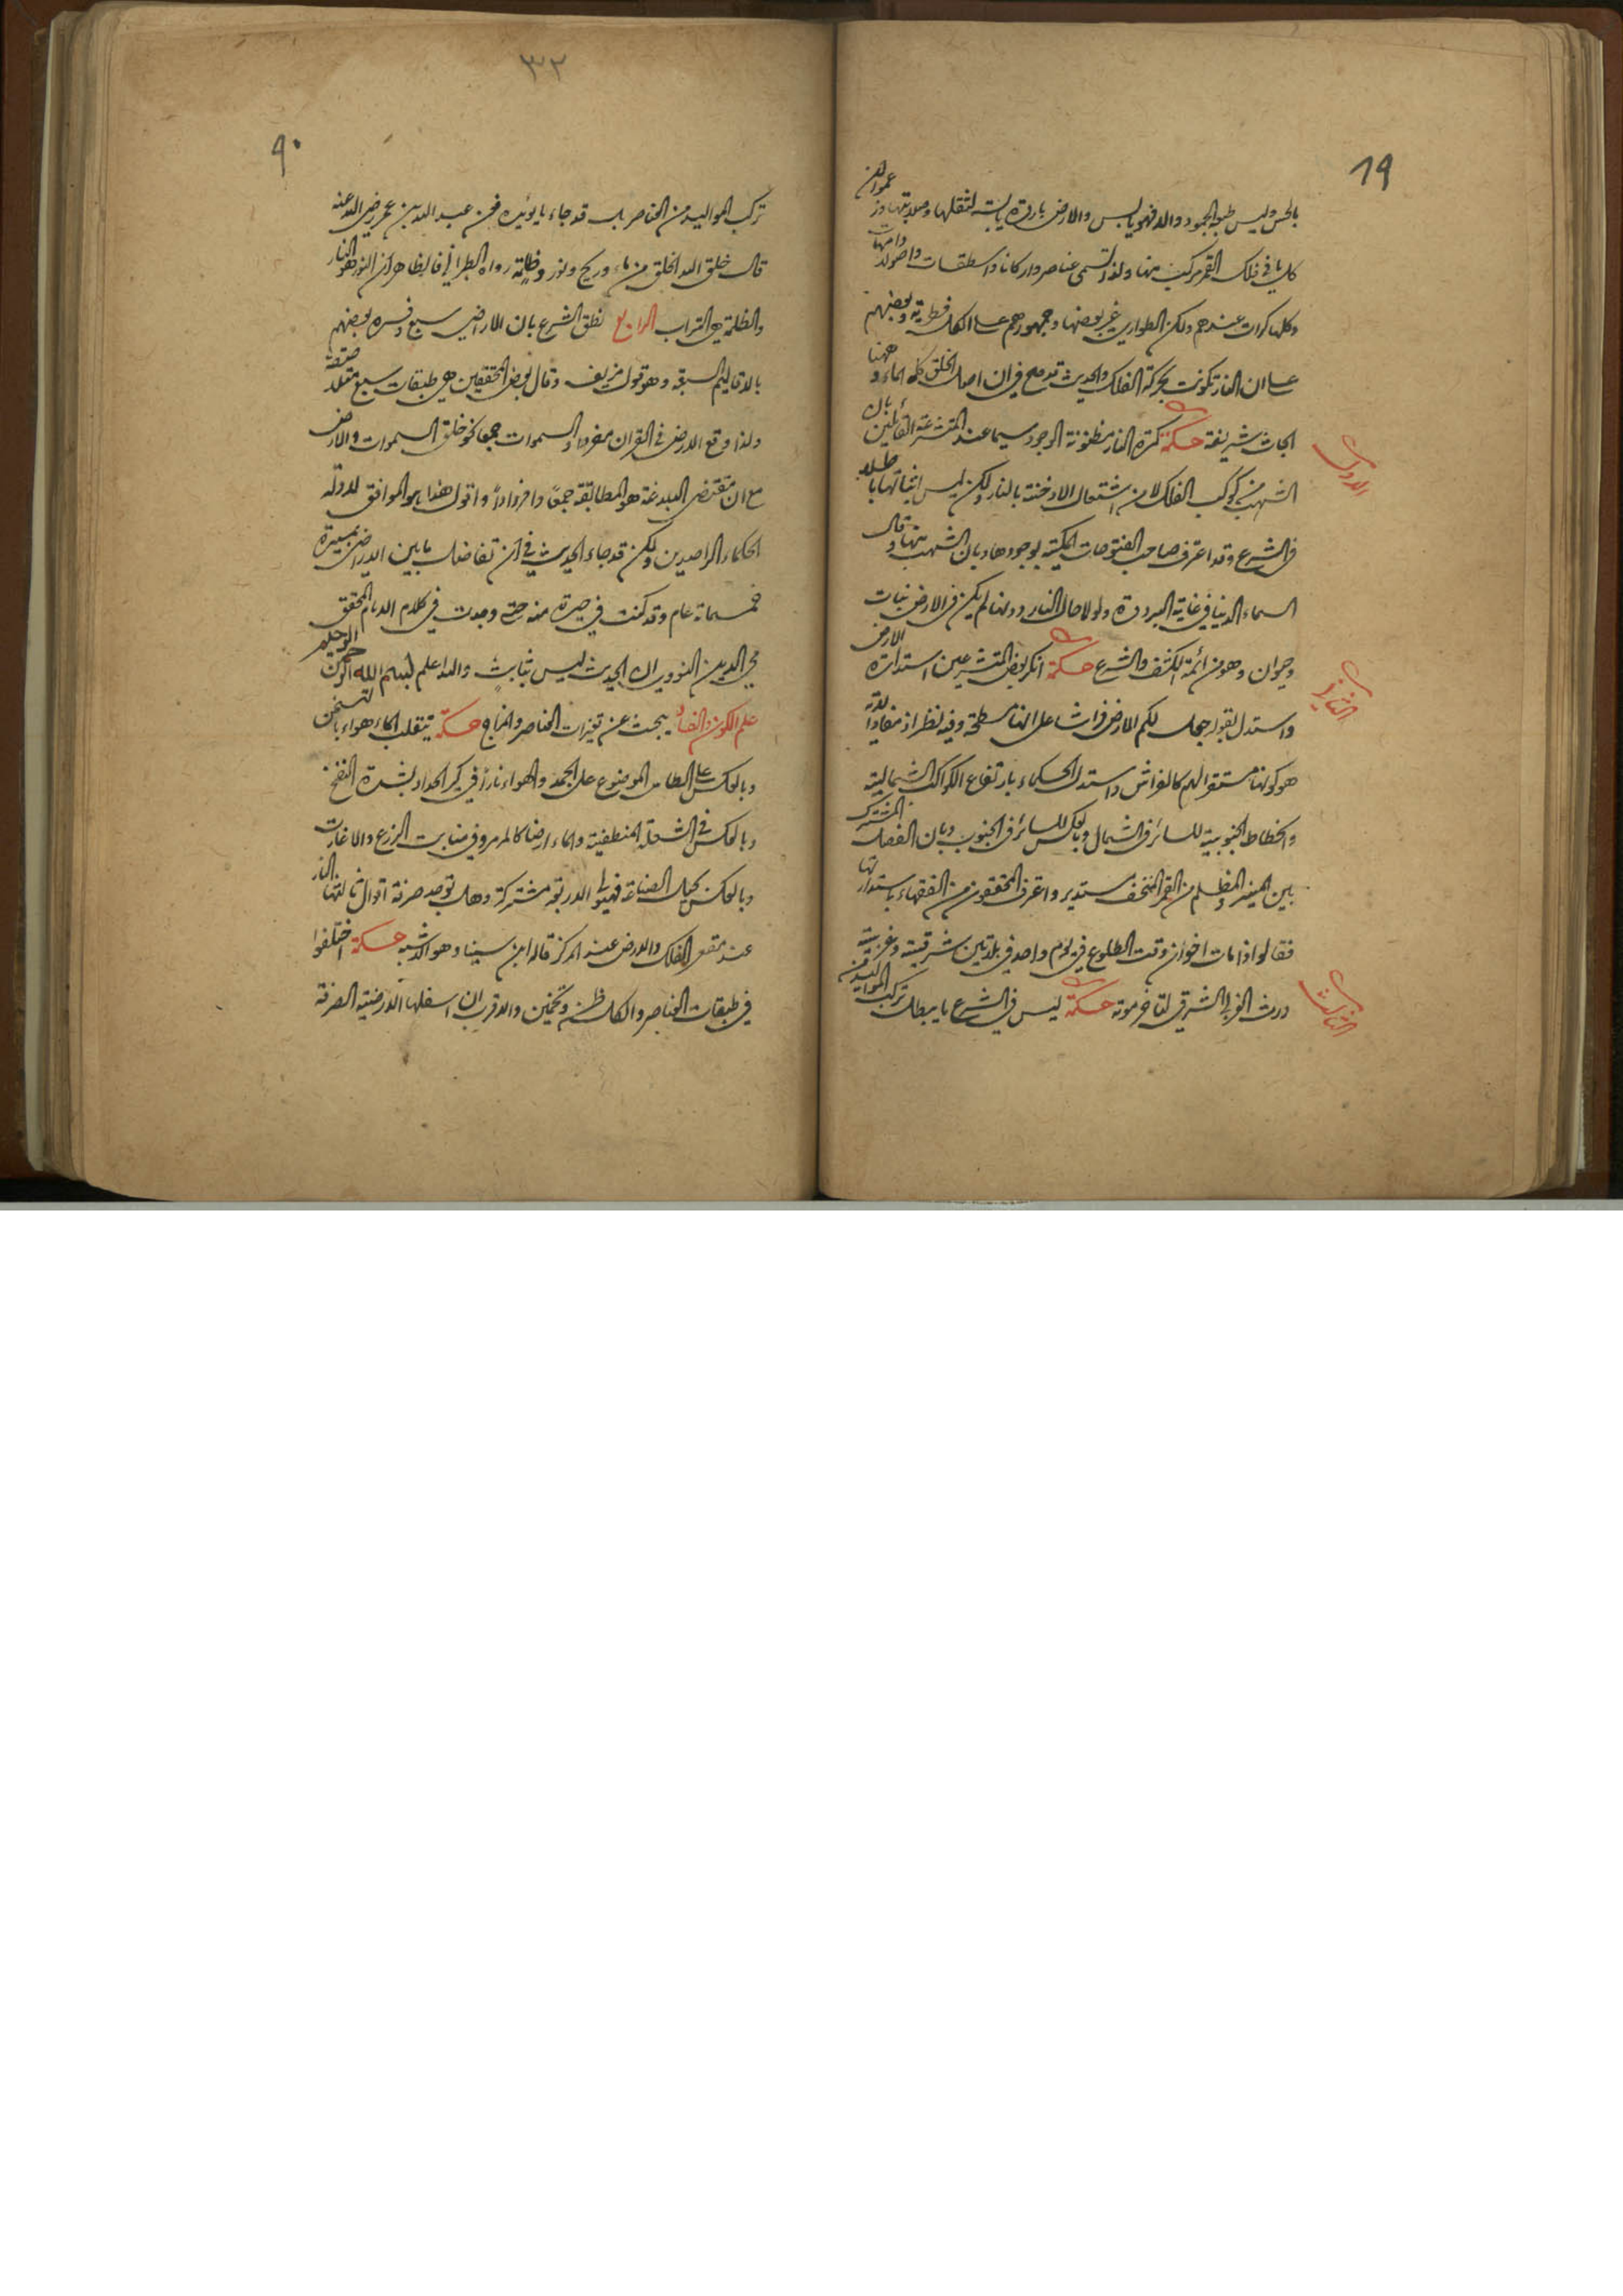 ١٩
بالحس وليس طبعه الجمود والا فهو يابس والارض باردة يابسة لثقلها وصلابتها وزعموا ان
كل ما في فلك القمر مركب منها ولذا تسمى عناصر واركانا واسطقسات واصولا وامهات
وكلها كرات عندهم ولكن الطواري غير بعضها وجمهورهم على ان الكل فطرية وبعضهم
على ان النار تكونت بحركة الفلك والحديث قد صح في ان اصل الخلق كله الماء وههنا
ابحاث شريفة حكمة كرة النار مظنونة الوجود سيما عند المتشرعة القائلين بان
الاول
الشهب من كوكب الفلك لا من اشتعال الادخنة بالنار ولكن ليس اثباتها باطلا
في الشرع وقد اعترف صاحب الفتوحات المكية بوجودها وبان الشهب منها وقال
السماء الدنيا في غاية البرودة ولولا حال النار دونها لم يكن في الارض نبات
وحيوان وهو من ائمة الكشف والشرع حكمة انكر بعض المتشرعين استدارة الارض
الثاني
واستدل بقوله جعل لكم الارض فراشا على انها مسطحة وفيه نظر اذ مفاده
هو كونها مستقرا لهم كالفراش واستدل الحكماء بارتفاع الكواكب الشمالية
وانحطاط الجنوبية للسائر في الشمال وبالعكس للسائر في الجنوب وبان الفصل المشترك
بين المنير والمظلم من القمر المنخسف مستدير واعترف المحققون من الفقهاء باستدارتها
فقالوا اذا مات اخوان وقت الطلوع في يوم واحد في بلدتين شرقية وغربية
ورث الغربي الشرقي لتاخر موته حكمة ليس في الشرع ما يبطل تركب المواليد من
الثالث
٣٢
٩٠
تركب المواليد من العناصر بل قد جاء ما يؤيده فعن عبد الله بن عمر رضي الله عنه
قال خلق الله الخلق من ماء وريح ونور وظلمة رواه الطبراني فالظاهر ان النور هو النار
والظلمة هي التراب الرابع نطق الشرع بان الاراضي سبع وفسره بعضهم
بالاقاليم السبعة وهو قول مزيف وقال بعض المحققين هي طبقات سبع متلاصقة
ولذا وقع الارض في القران مفردا والسموات جمعا نحو خلق السموات والارض
مع ان مقتضى البلاغة هو المطابقة جمعا وافرادا واقول هذا هو الموافق لادلة
الحكماء الراصدين ولكن قد جاء الحديث في ان تفاضل ما بين الارضين مسيرة
خمسمائة عام وقد كنت في حيرة منه حتى وجدت في كلام الامام المحقق
محي الدين النووي ان الحديث ليس بثابت والله اعلم بسم الله الرحمن الرحيم
علم الكون والفساد يبحث عن تغيرات العناصر والمزاج حكمة ينقلب الماء هواء بالتسخن
وبالعكس على الطاس الموضوع على الجمد والهواء نارا في كير الحداد بشدة النفخ
وبالعكس في الشعلة المنطفية والماء ارضا كالمرمر وفي منابت الزرع والاغارت
وبالعكس بحيل الصناعة فهيولى الاربعة مشتركة وهل توجد صرفة اقوال ثالثها النار
عند مقعر الفلك والارض عند المركز قاله ابن سينا وهو الاشبه حكمة اختلفوا
في طبقات العناصر والكل ظن وتخمين والاقرب ان اسفلها الارضية الصرفة